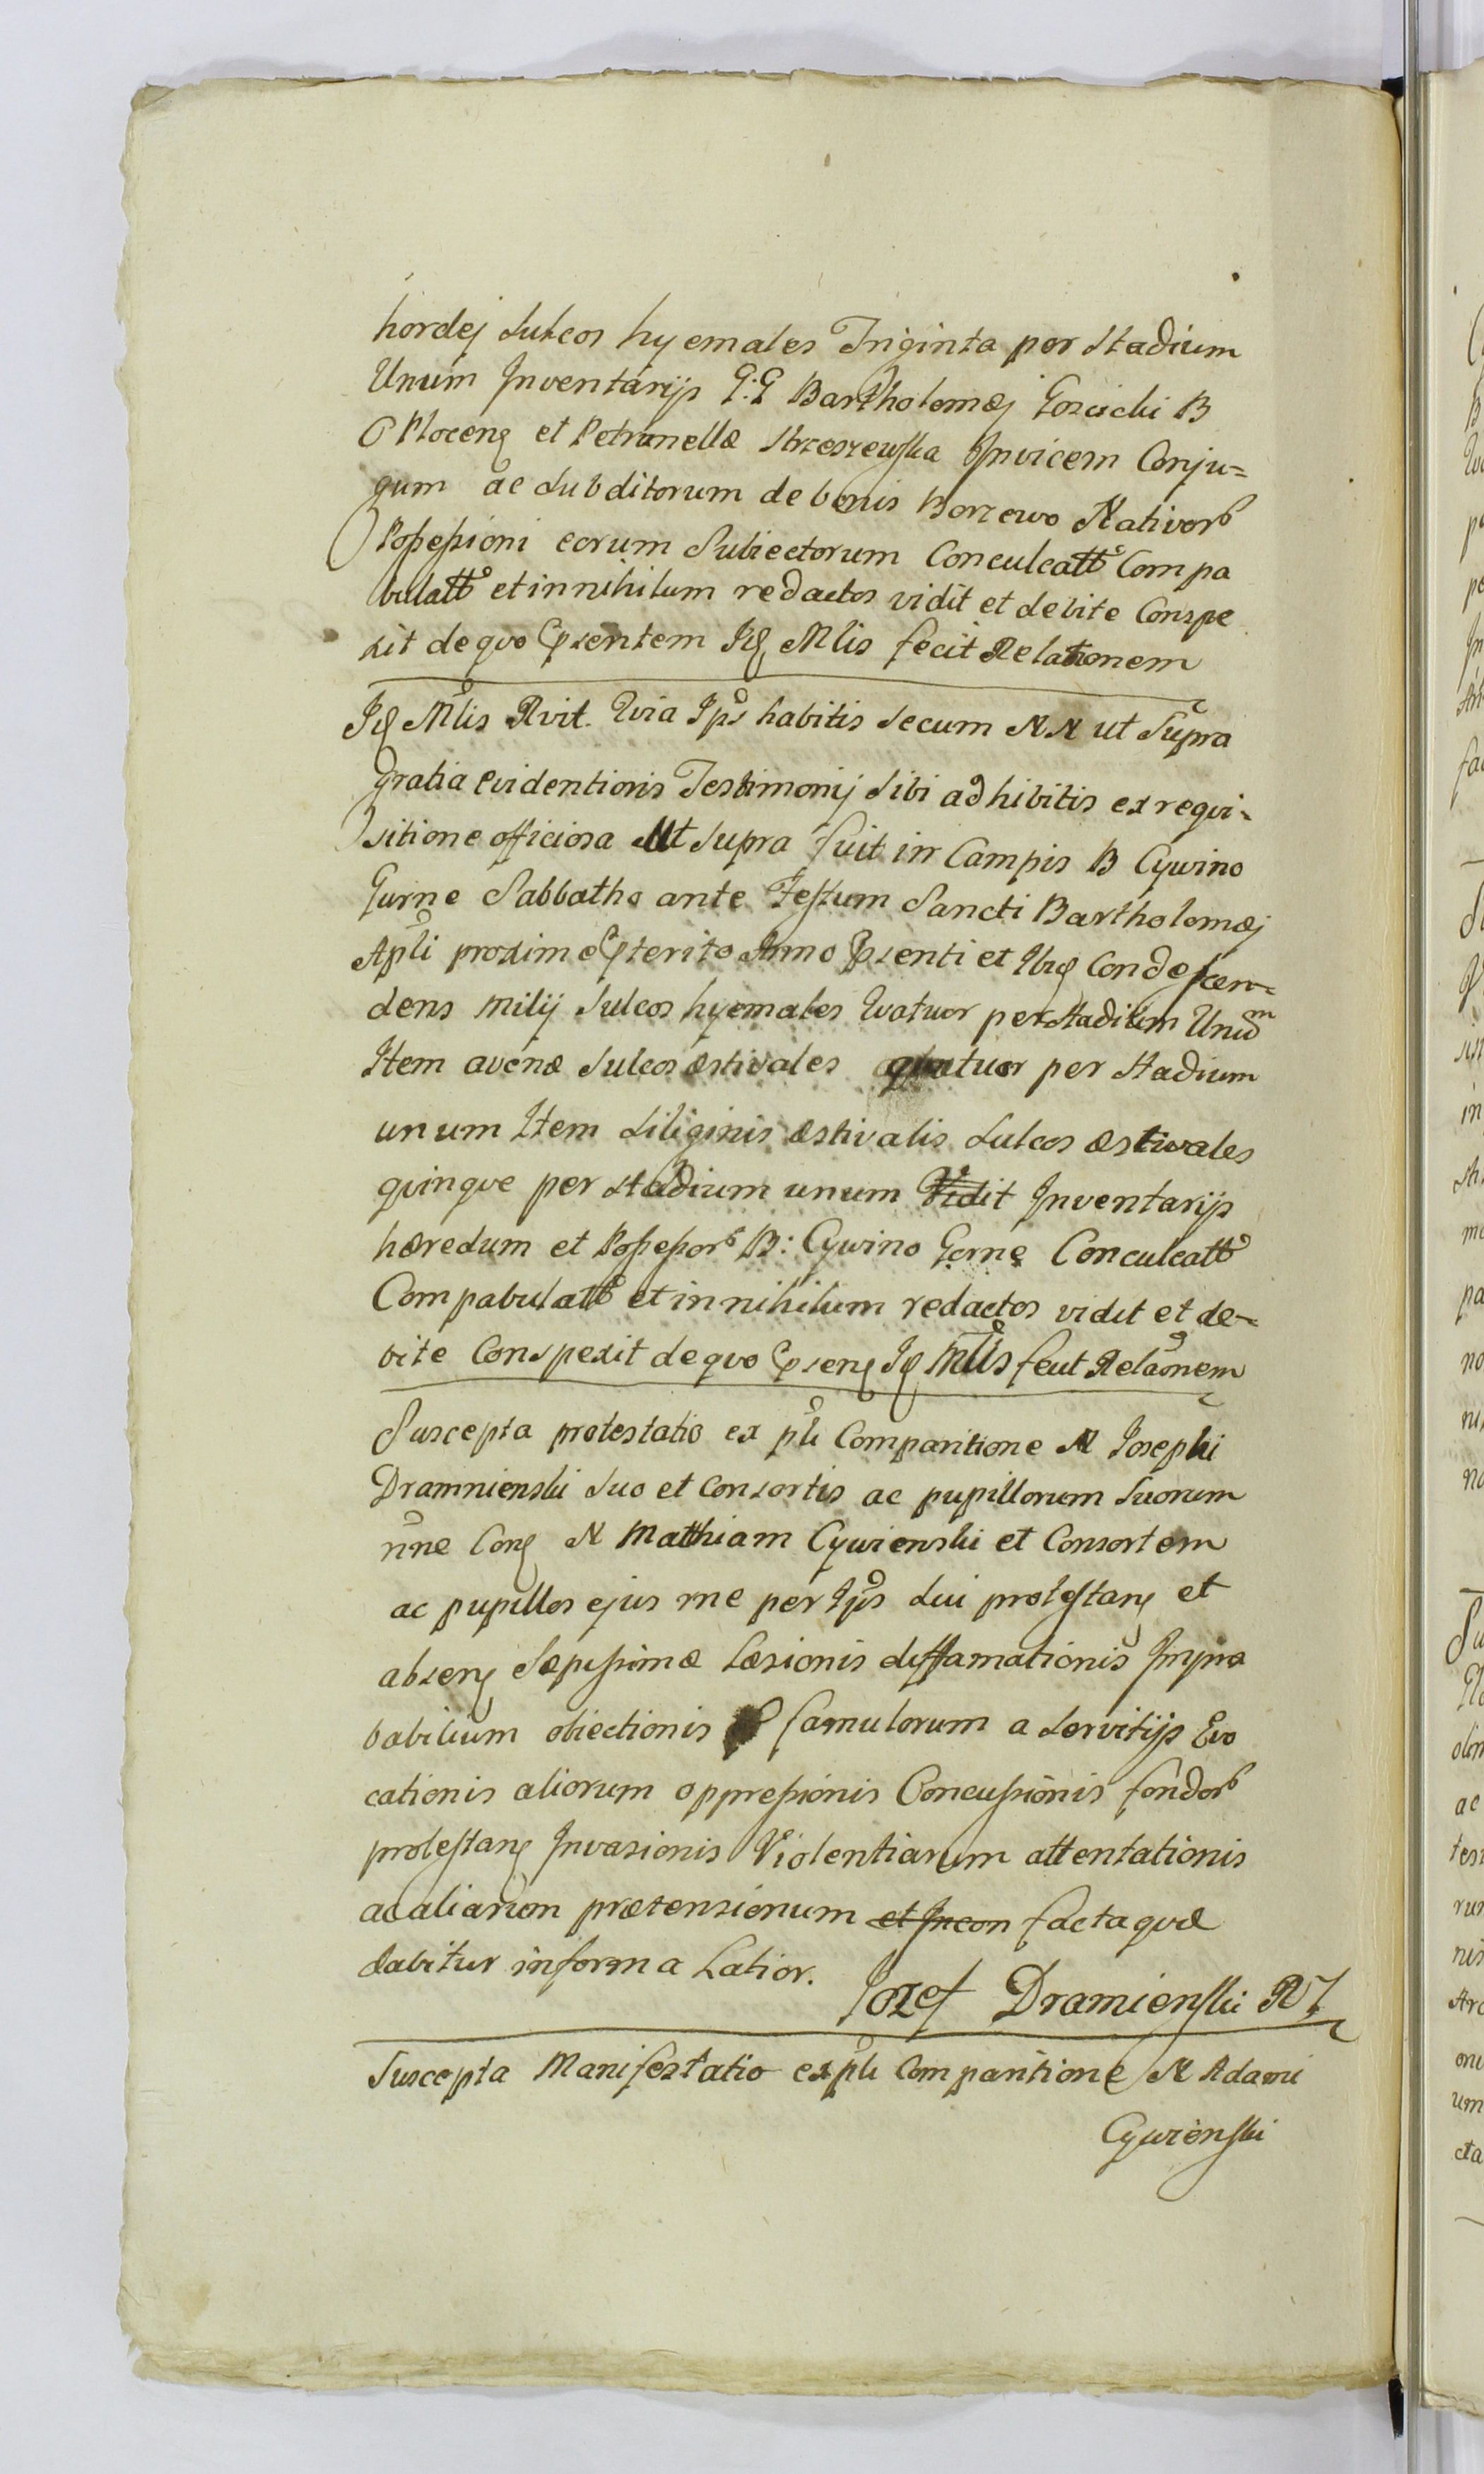 hordej Sulcos hyemales Triginta per Stadium
Unum Inventarijs G: G Bartholomæj Gościcki B
P Plocens et Petronellæ Strzeszewska Invicem Conju=
gum ac Subditorum de bonis Borzewo Nativor
Possessioni eorum Subiectorum Conculcatt Compa
bulatt et in nihilum redactos vidit et debite Conspe
xit de quo Psentem Id Mlis fecit Relationem
Id Mlis Rvit. Quia Ips habitis secum NN ut Supra
gratia evidentioris Testimonij Sibi adhibitis ex reqvi-
sitione officiosa Ut Supra fuit in Campis B Cywino
Gurne Sabbatho ante Festum Sancti Bartholomæj
Apli proxime Pterito Anno Psenti et Ibid Condescen-
dens milij Sulcos hyemales Quatuor per Stadium Unum
Item avenæ Sulcos æstivales quatuor per Stadium
unum Item Siliginis æstivalis Sulcos æstivales
qvinqve per Stadium unum Vidit Inventarijs
hæredum et Possessor B: Cywino Gorne Conculcatt
Compabulatt et in nihilum redactos vidit et de-
bite Conspexit de quo Psens Id Mlis fecit Relaonem
Suscepta protestatio ex pli Comparitione N Josephi
Dramnienski Suo et Consortis ac pupillorum Suorum
nne Cons N Mathiam Cywienski et Consortem
ac pupillos ejus rne per Ips Sui protestans et
absens Sæpissimæ Læsionis diffamationis Impro
babilium obiectionis famulorum a Servitijs Evo
cationis aliorum oppressionis Concussionis fondor
protestans Invasionis Violentiarum attentationis
ac aliarum prætensionum et Incon facta qvæ
dabitur in forma Latior.
Jozef Dramienski
Suscepta Manifestatio ex pli Comparitione N Adami
Cywienski